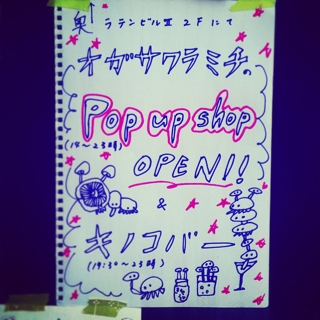 奥↑
ラテンビルⅢ 2Fにて
オガサワラミチの
Pop up shop
(14〜23時)
OPEN!!
&
キノコバー
(19:30〜23時)